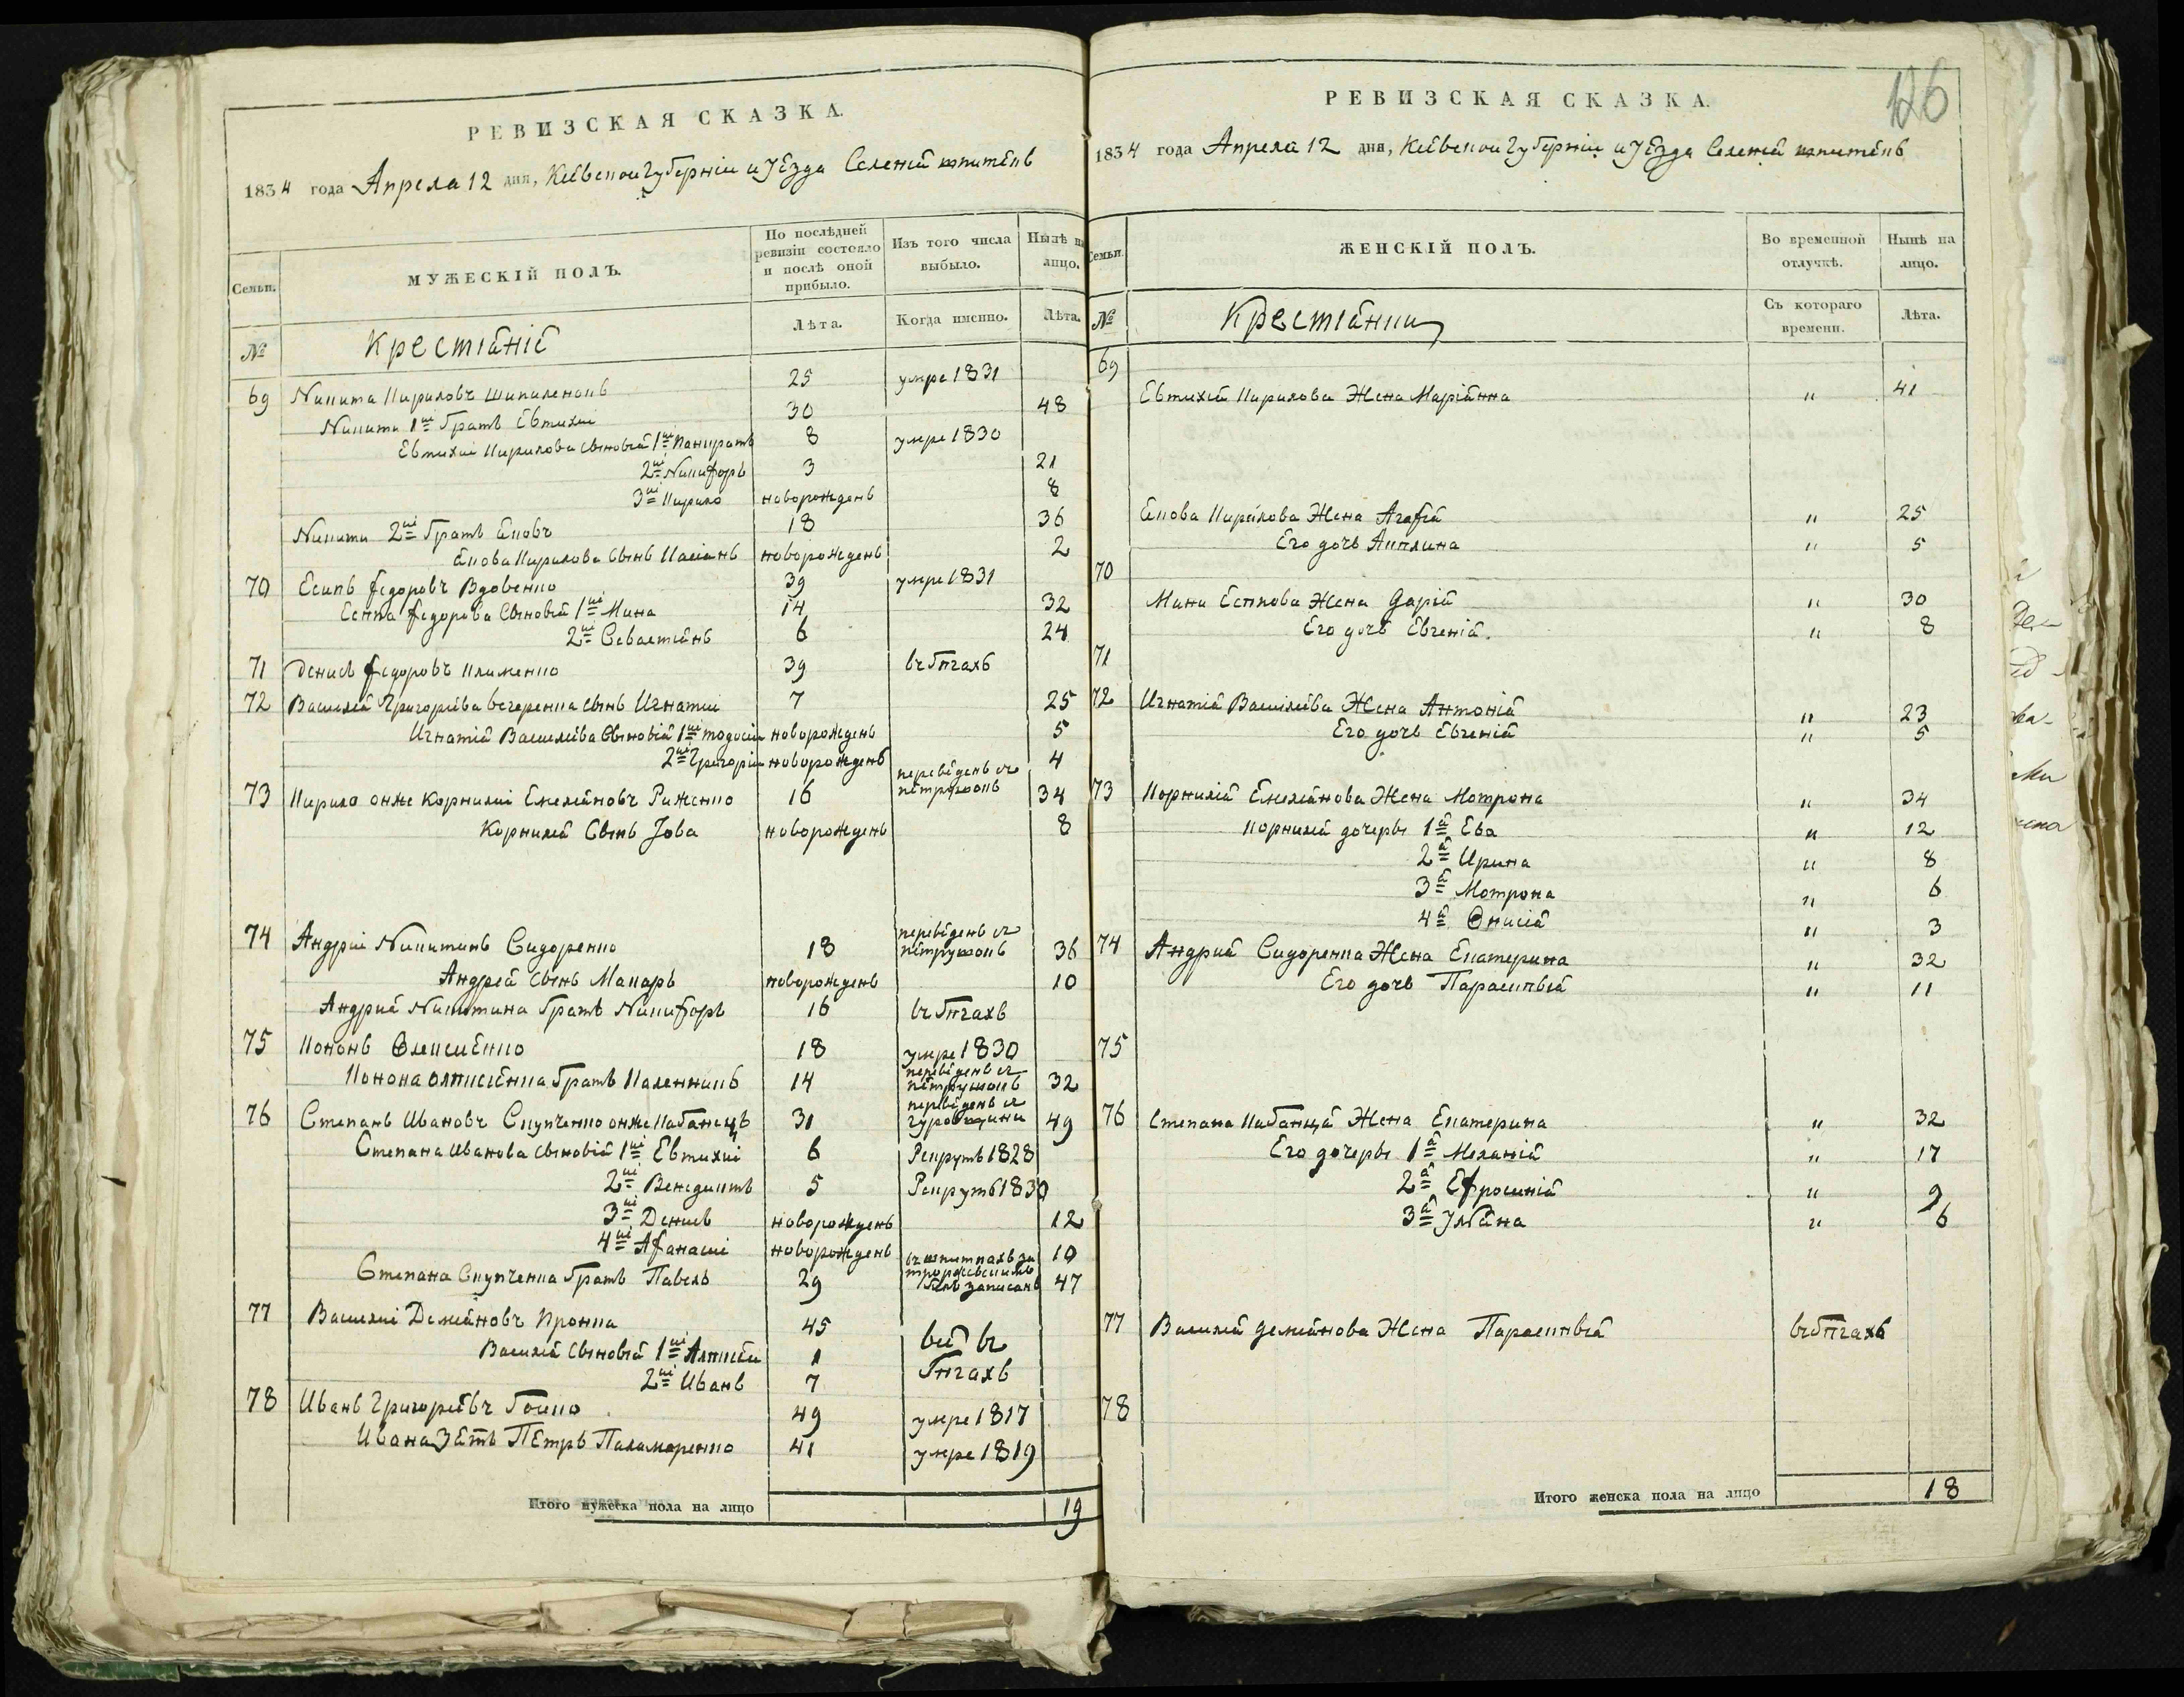 РЕВИЗСКАЯ СКАЗКА.
1834 года Апреля 12 дня, Кіевской Губерніи и Уезда Селенія
Семьи.
МУЖЕСКІЙ ПОЛЪ.
По послѣдней ревизіи состояло и послѣ оной прибыло.
Изъ того числа выбыло.
Нынѣ на лицо.
№
Крестіяніа
Лѣта.
Когда именно.
Лѣта.
69 Никита Кириловъ 25 умре 1831
Никити 1й братъ Евтихій 30 48
Евтихій Кирилова сыновій 1й Панкратъ 8 умре 1830
2й Никифоръ 3 21
3й Кирило новорожденъ 8
Никити 2й братъ Яковъ 18 36
Якова Кирилова сынъ Касіянъ новорожденъ 2
70 Есипъ Федоровъ Вдовенко 39 умре 1831
Есипа Федорова сыновій 1й Мина 14 32
2й Севастіянъ 6 24
71 Денисъ Федоровъ Клименко 39 въ бѣгахъ
72 Василій Григоріева сынъ Игнатій 7 25
Игнатій Василіева сыновій 1й Тодосій новорожденъ 5
2й Григорій новорожденъ 4
73 Кирило онже Корнилій Емеляновъ Риженко 16 переведенъ съ 34
Корнилія сынъ Іова новорожденъ 8
74 Андрій Никитинъ Сидоренко 18 переведенъ съ 36
Андрея сынъ Макаръ новорожденъ 10
Андрія Никитина братъ Никифоръ 16 въ бѣгахъ
75 Кононъ Олексіенко 18 умре 1830
Конона Олексіенка братъ Каленникъ 14 переведенъ съ 32
76 Степанъ Ивановъ Скупченко онже Кабанецъ 31 переведенъ съ 49
Степана Иванова сыновій 1й Евтихій 6 Рекрутъ 1828
2й Венедиктъ 5 Рекрутъ 1830
3й Денисъ новорожденъ 12
4й Афанасій новорожденъ 10
Степана Скупченка братъ Павелъ 29 записанъ 47
77 Василій Деміяновъ Пронка 45 всѣ въ
Василія сыновія 1й Алексѣй 1 бѣгахъ
2й Иванъ 7
78 Иванъ Григоріевъ Бойко 49 умре 1817
Ивана зеть Петръ Паламаренко 41 умре 1819
Итого мужеска пола на лицо 19
126
РЕВИЗСКАЯ СКАЗКА.
1834 года Апреля 12 дня, Кіевской Губерніи и Уезда Селенія
Семьи.
ЖЕНСКІЙ ПОЛЪ.
Во временной отлучкѣ.
Нынѣ на лицо.
№
Крестіянки
Съ котораго времени.
Лѣта.
69
Евтихія Кирилова Жена Маріянна " 41
Якова Кирилова Жена Агафія " 25
Его дочь Акилина " 5
70
Мини Есипова Жена Дарія " 30
Его дочь Евгенія. " 8
71
72 Игнатія Василіева Жена Антонія " 23
Его дочь Евгенія " 5
73 Корнилія Емелянова Жена Мотрона " 34
Корнилія дочеры 1я Ева " 12
2я Ирина " 8
3я Мотрона " 6
4я Онисія " 3
74 Андрія Сидоренка Жена Екатерина " 32
Его дочь Параскивія " 11
75
76 Степана Кабанця Жена Екатерина " 32
Его дочеры 1я Меланія " 17
2я Ефросинія " 9
3я Уляна " 6
77 Василія Деміянова Жена Параскивія въ бѣгахъ
78
Итого женска пола на лицо 18